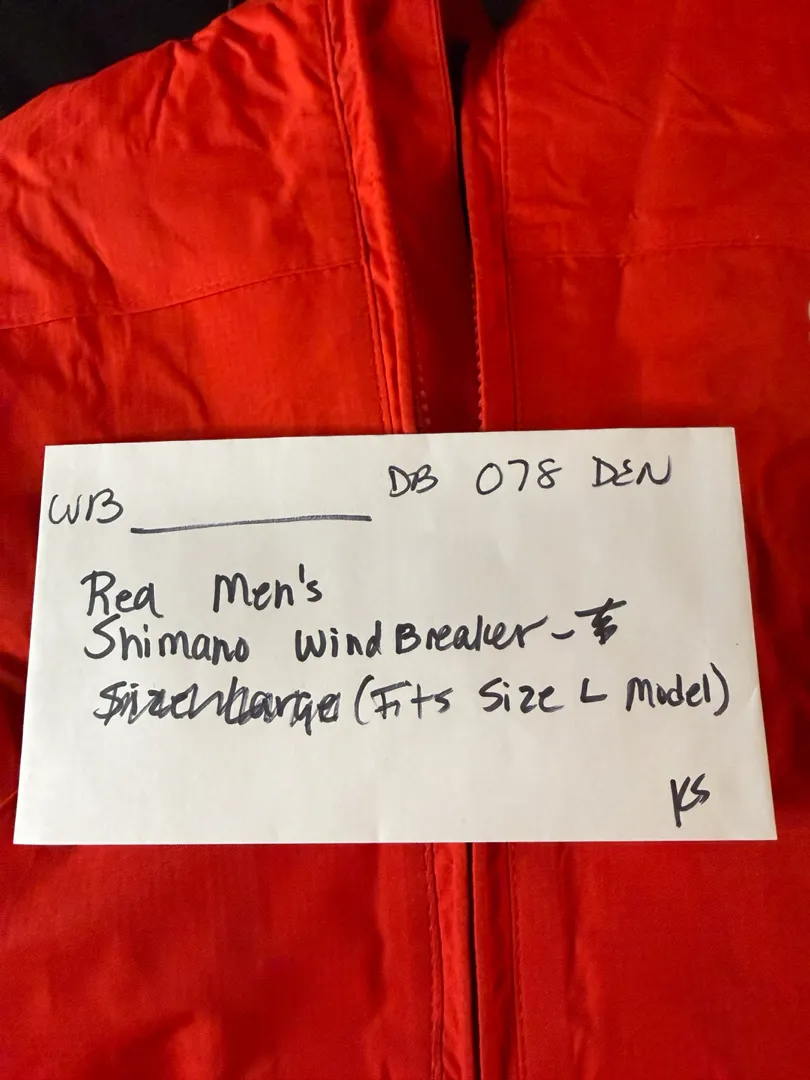 WB __________ DB 078 DEN
Red Men's
Shimano WindBreaker -
Size Large (Fits Size L Model)
KS